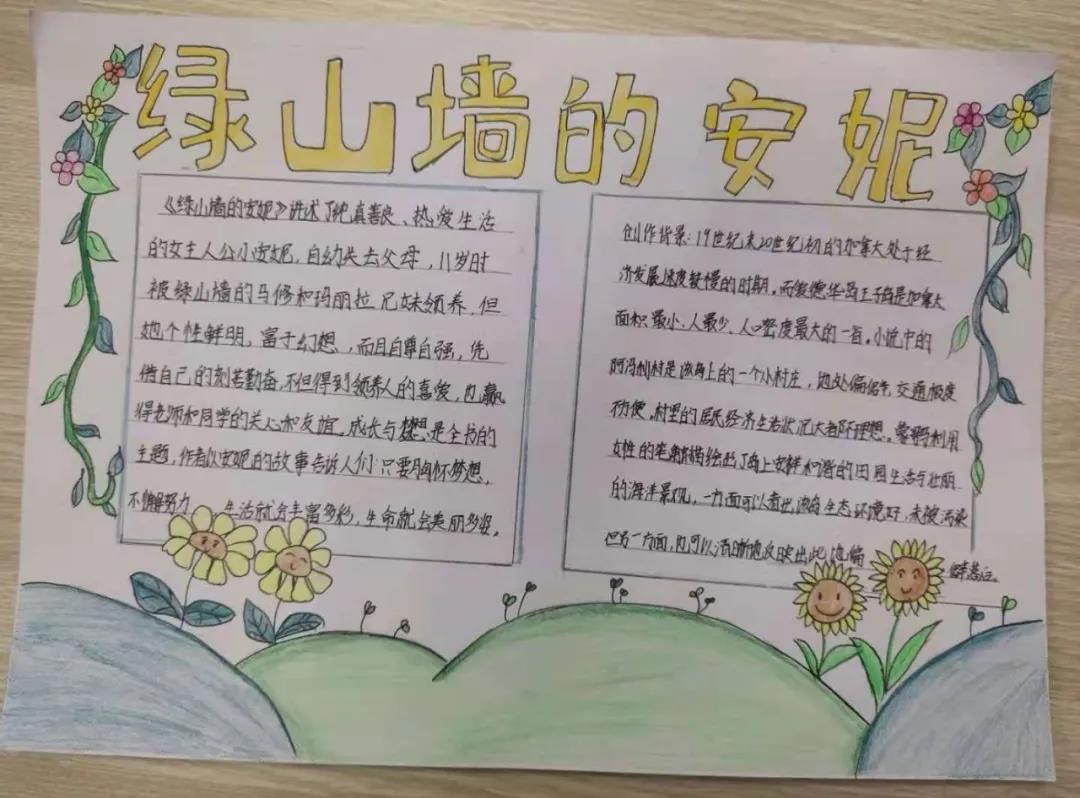 绿山墙的安妮
《绿山墙的安妮》讲述了纯真善良、热爱生活
的女主人公小安妮,自幼失去父母,11岁时
被绿山墙的马修和玛丽拉兄妹领养,但
她个性鲜明,富于幻想,而且自尊自强,凭
借自己的刻苦勤奋,不但得到领养人的喜爱,也赢
得老师和同学的关心和友谊。成长与梦想是全书的
主题,作者以安妮的故事告诉人们:只要胸怀梦想、
不懈努力,生活就会丰富多彩,生命就会美丽多姿。
创作背景:19世纪末20世纪初的加拿大处于经
济发展速度较慢的时期。而爱德华岛王子岛是加拿大
面积最小、人最少、人口密度最大的一省。小说中的
阿冯利村是该岛上的一个小村庄,地处偏僻,交通极度
不便,村里的居民经济生活状况大都不理想。蒙哥利用
女性的笔触描绘出了岛上安祥和谐的田园生活与壮丽
的海洋景观,一方面可以看出该岛生态环境好,未被污染
但另一方面,也可以清晰地反映出此地偏
僻落后。